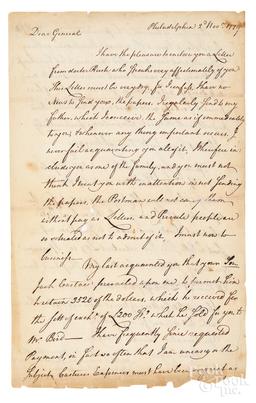 Philadelphia 2d Novr. 1779
Dear General
I have the pleasure to enclose you a Letter
from doctor Rush who speaks very affectionately of you
This Letter must be very dry, for I confess I have no
News to send you, the papers, I regularly send to my
father, which I conceive the same as if immediately
to you; & whenever any thing important occurs, I
never fail acquainting you all of it, Wherefore in-
clude you as one of the family, and you must not
think I treat you with inattention in not sending
the papers, the Postman will not carry them
without pay as Letters and People are
so as not to admit of it. I must now to
business
My last acquainted you that your
had prevailed upon me to permit him
to retain 3520 of the dollars, which he received for
the of £200 which he sold for you to
Mr. Bird — I have frequently since requested
Payment, in fact so often that I am uneasy on the
Subject, Expences must have been great as